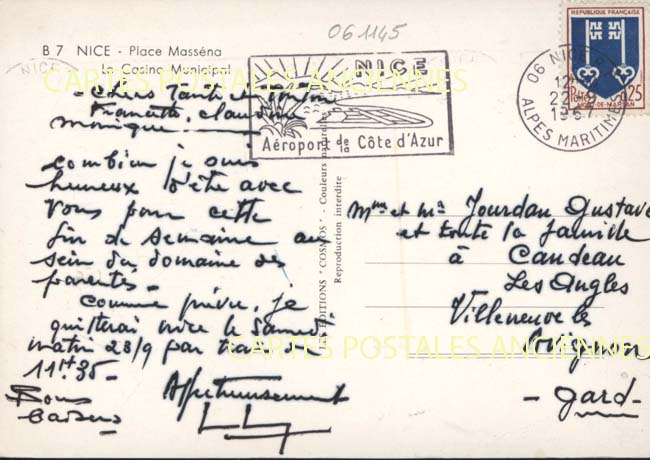 061145
B 7 NICE - Place Masséna
Le Casino Municipal
CARTES POSTALES ANCIENNES
NICE
Aéroport de la Côte d'Azur
06 NICE
12
22-9
196
ALPES MARITIMES
REPUBLIQUE FRANÇAISE
MONT-DE-MARSAN
0,25
Francette, Claudine
Monique
Combien je suis
heureux d'être avec
vous pour cette
fin de semaine au
sein du domaine des
parents.
Comme prévu, je
quitterai Nice le Samedi
matin 23/9 par train de
11H.35-
Affectueusement
Bons
Baisers
LES EDITIONS "COSMOS" - Couleurs naturelles
Reproduction interdite
Mme et Mr Jourdan Gustave
et toute la famille
à Candeau
Les Angles
Villeneuve les
Avignon
- Gard -
CARTES POSTALES ANCIENNES